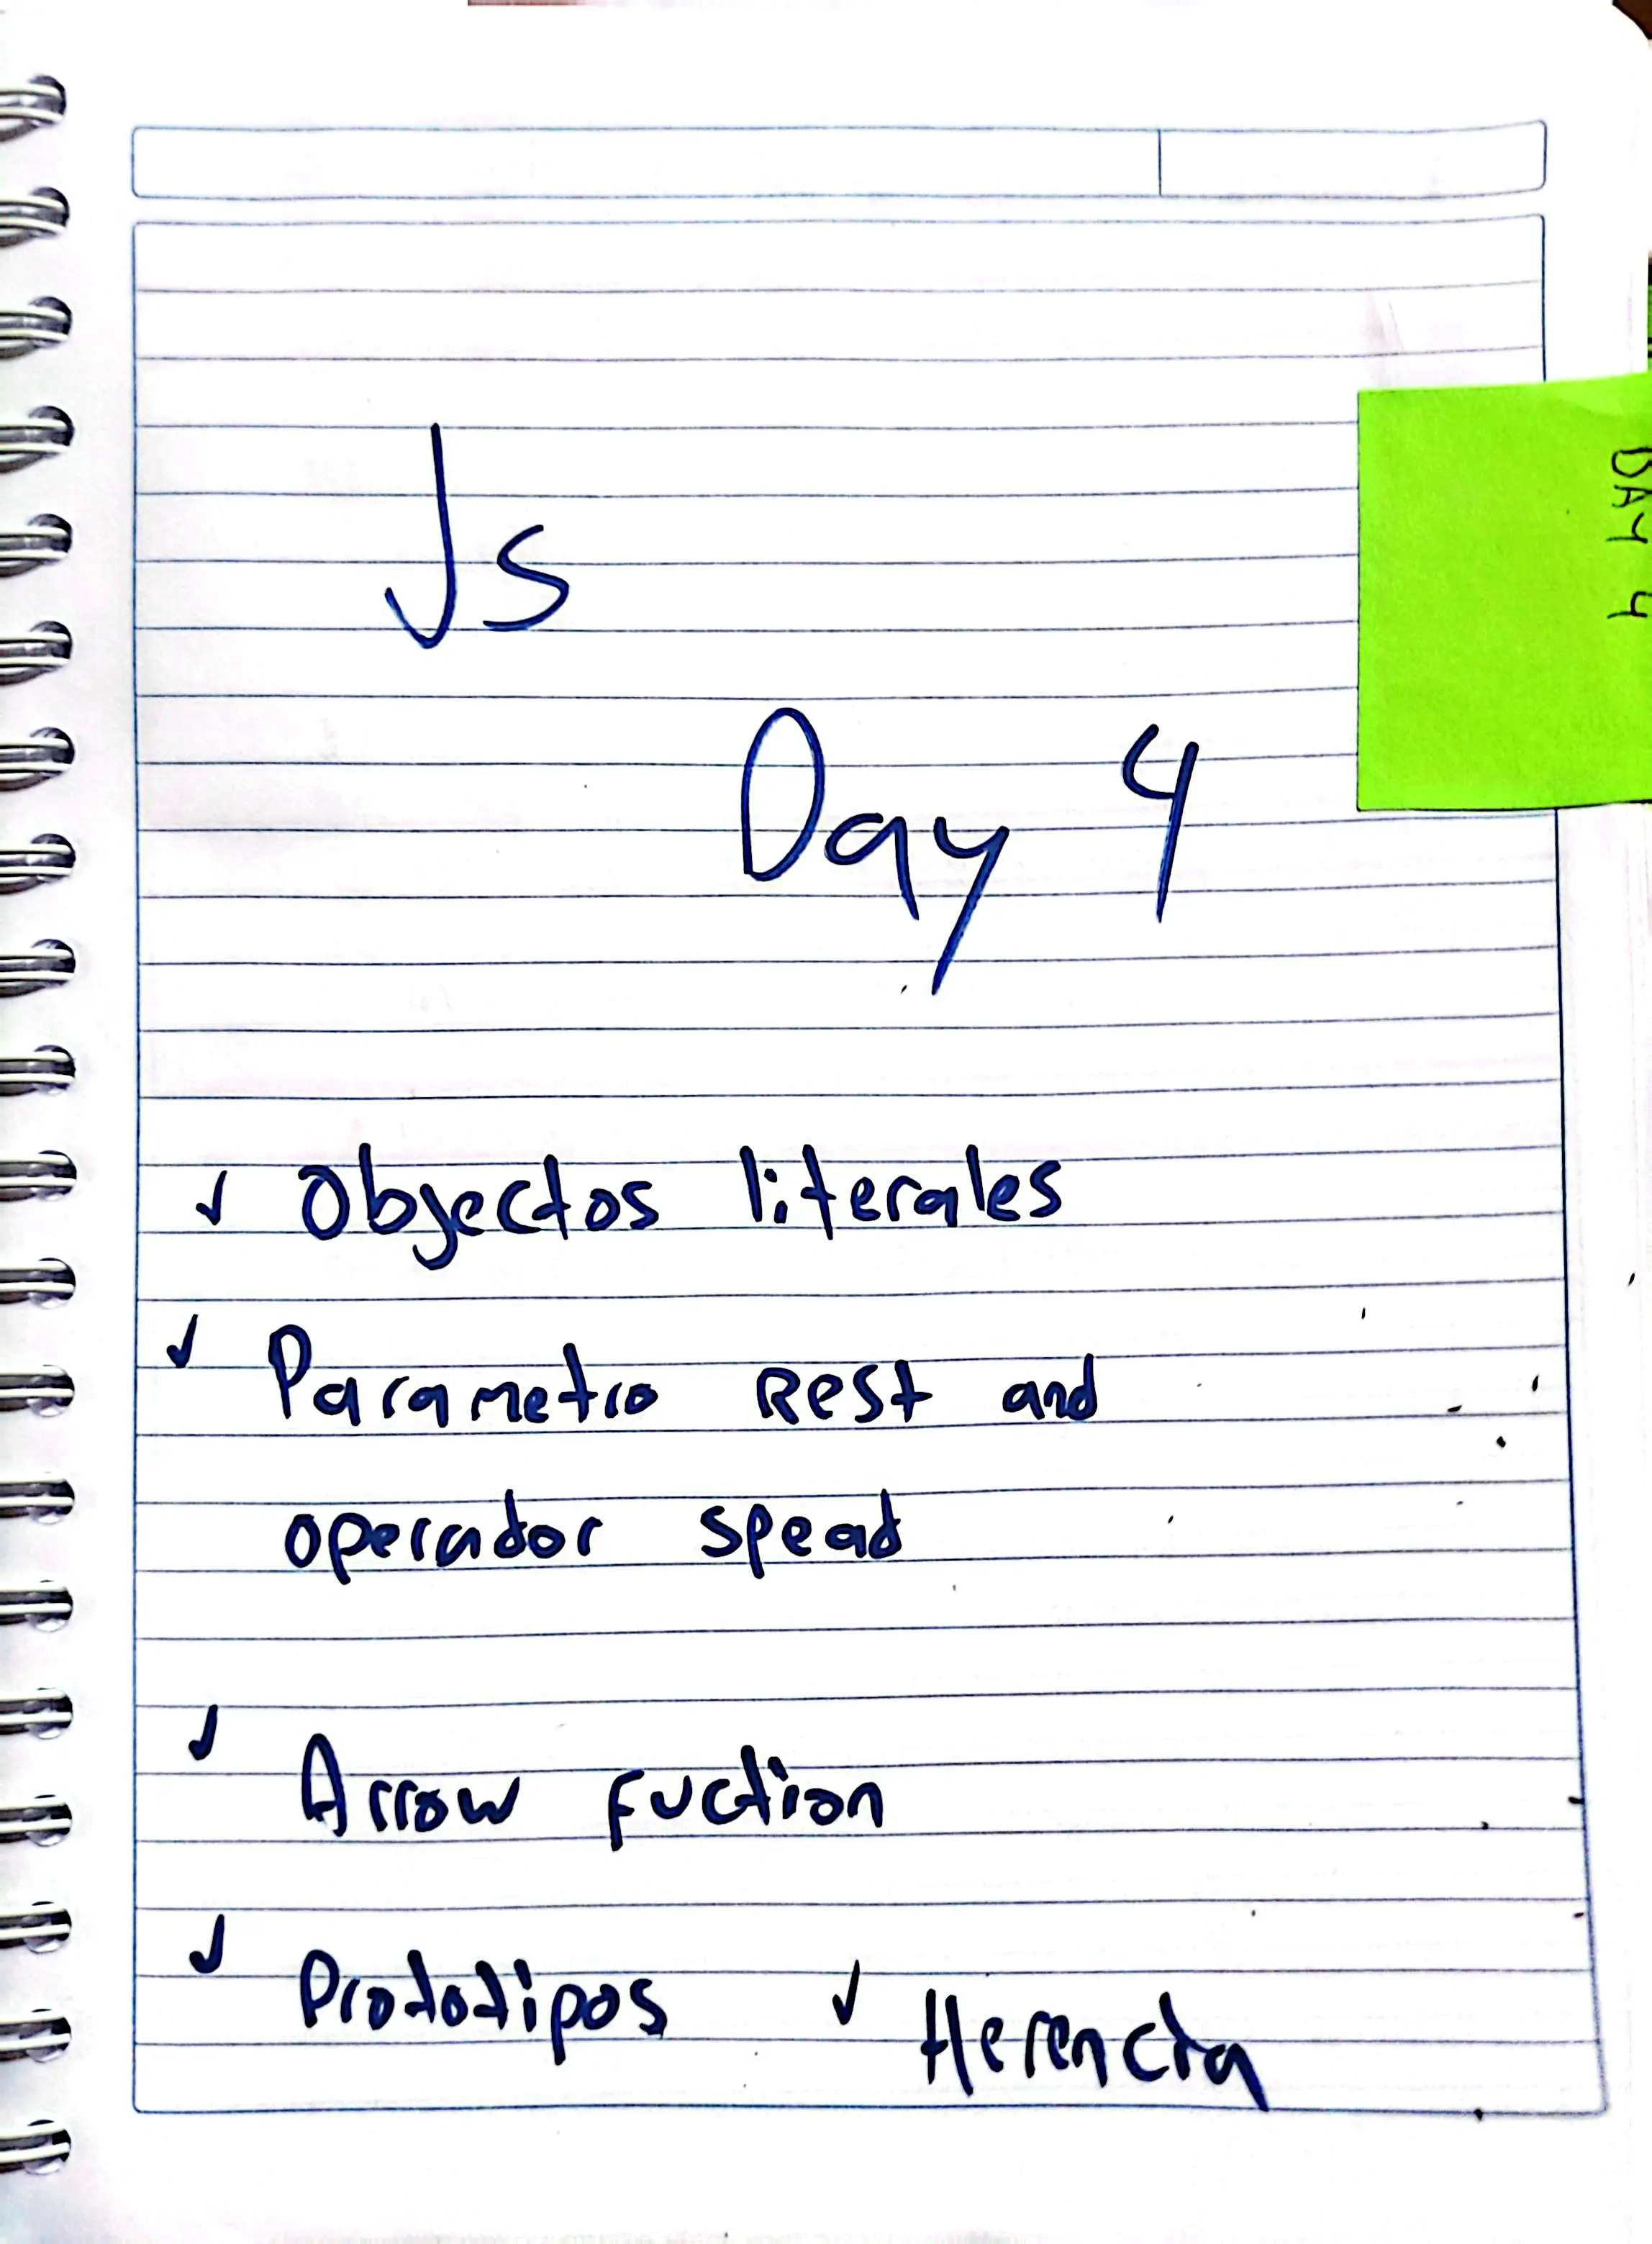 Js
DAY 4
Day 4
✓ Objectos literales
✓ Parametro Rest and
operador spead
✓ Arrow fuction
✓ Prototipos ✓ Herencia